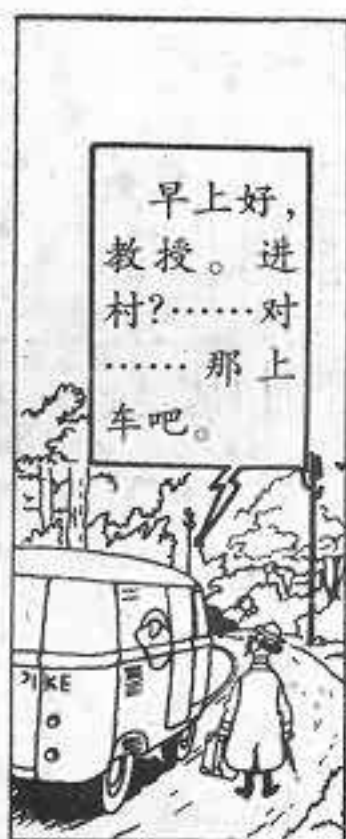 早上好，
教授。进
村？……对
……那上
车吧。